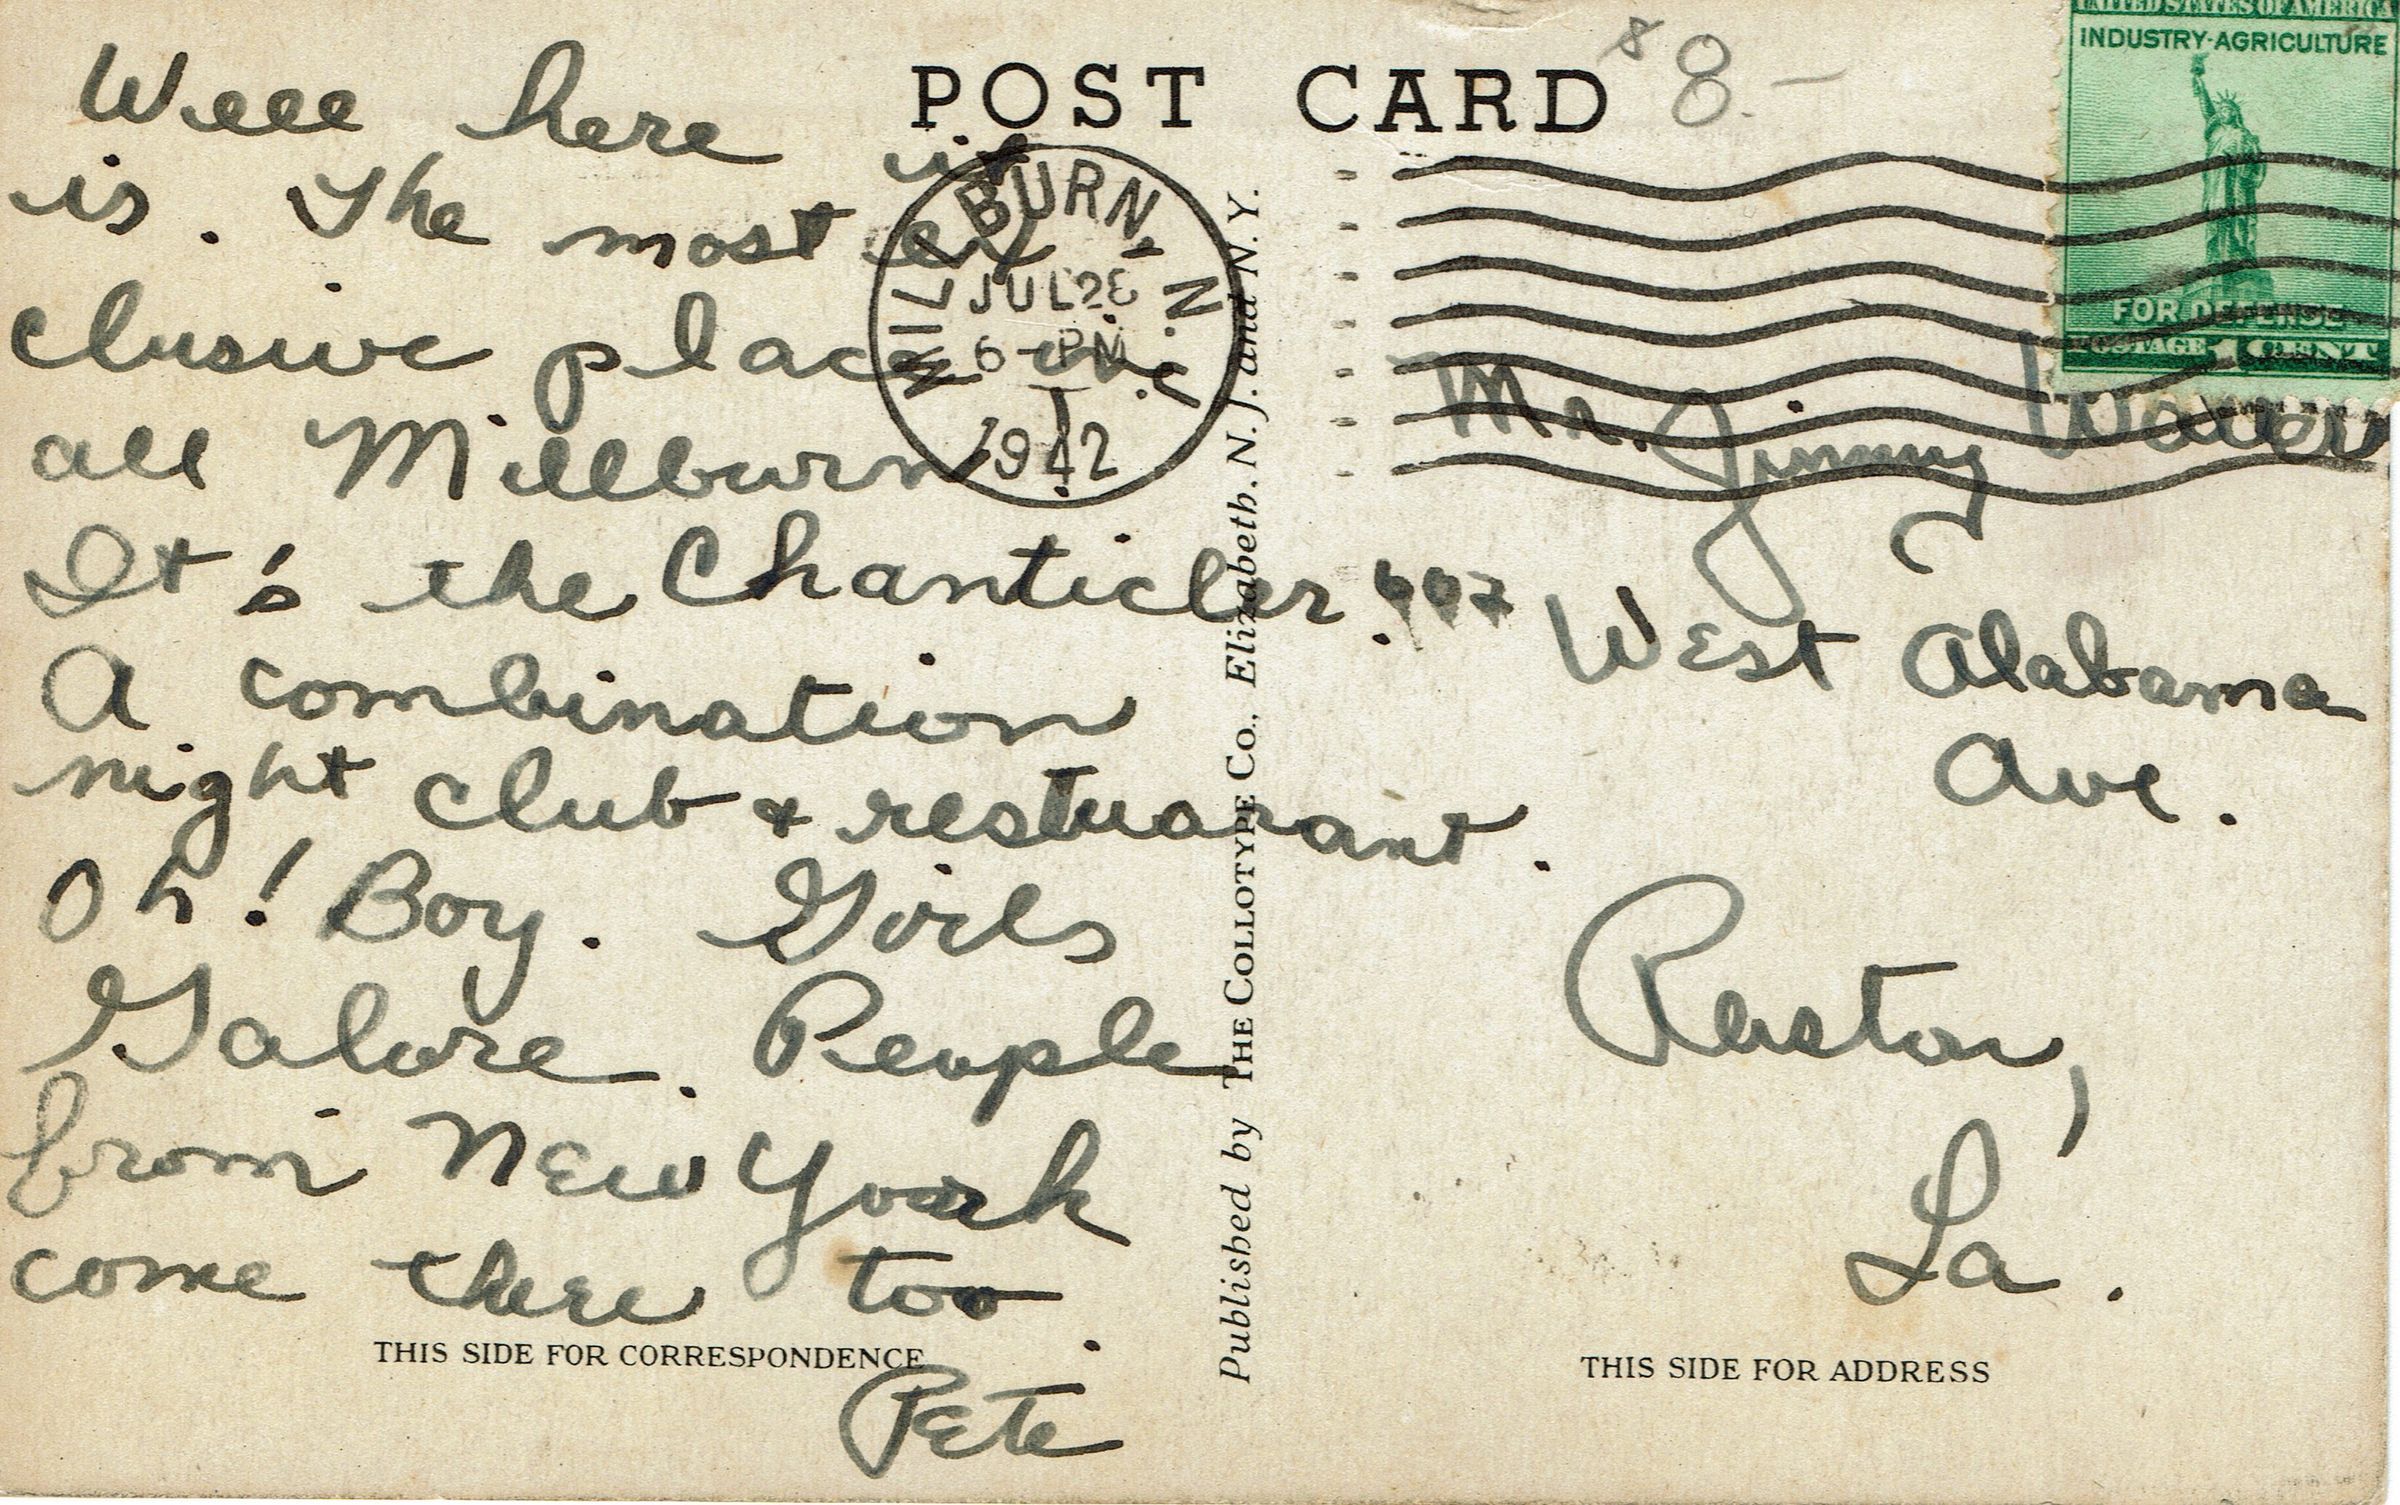 POST CARD
$8.-
UNITED STATES OF AMERICA
INDUSTRY·AGRICULTURE
FOR DEFENSE
POSTAGE 1 CENT
MILLBURN, N.J.
JUL 28
6 - PM
1942
Well here it
is. The most ex
clusive place in
all Millburn
It's the Chanticler.
A combination
night club & restuarant.
Oh! Boy. Girls
Galore. People
from New York
come there too.
Pete
THIS SIDE FOR CORRESPONDENCE
Published by THE COLLOTYPE CO., Elizabeth, N. J. and N. Y.
Mr. Jimmy
607 West Alabama
Ave.
Ruston,
La.
THIS SIDE FOR ADDRESS